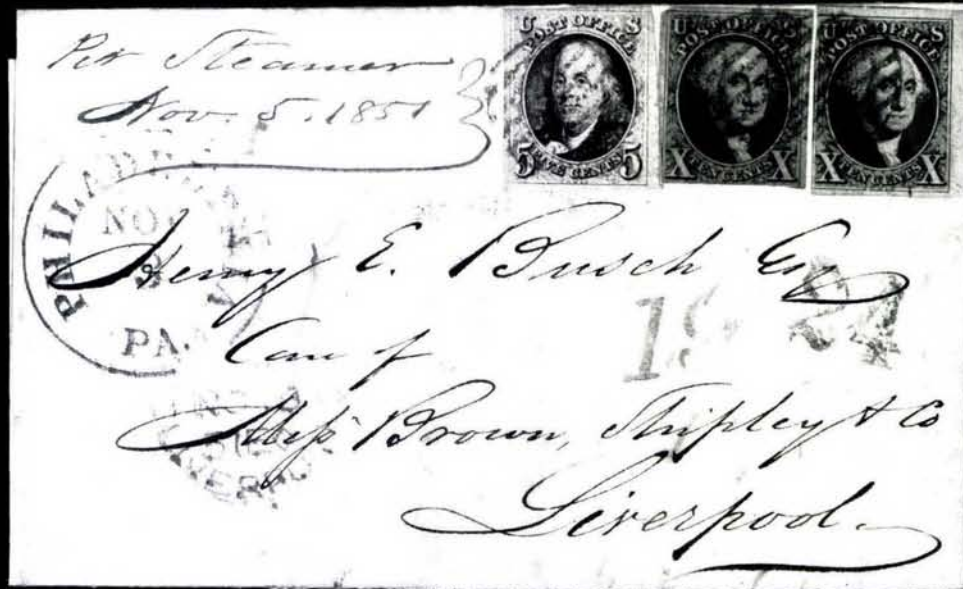 Per Steamer
Nov. 5. 1851
U S
POST OFFICE
5 FIVE CENTS 5
U S
POST OFFICE
X TEN CENTS X
U S
POST OFFICE
X TEN CENTS X
PHILADELPHIA
NOV
PA.
Henry E. Busch Esq
19 24
Care of
Mess Brown, Shipley & Co
Liverpool.